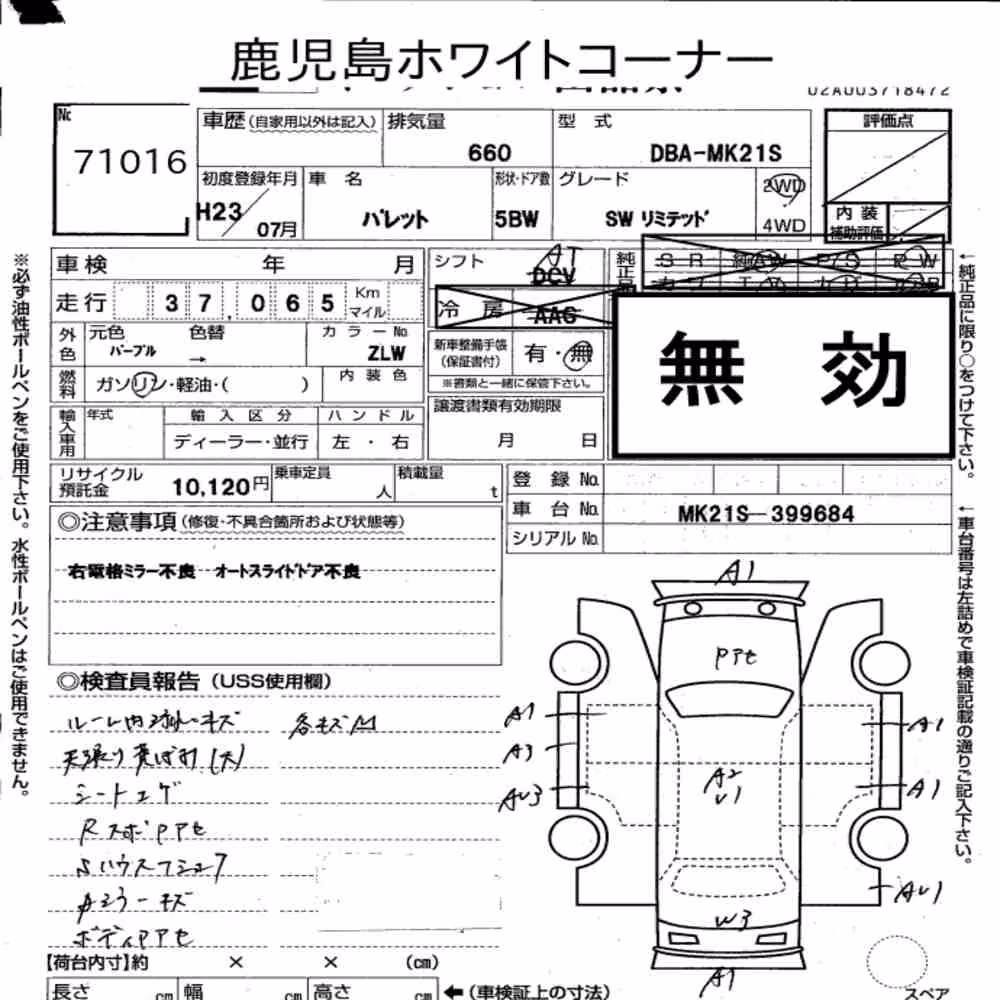 鹿児島ホワイトコーナー
02A003718472
No
71016
車歴(自家用以外は記入)
排気量
660
型 式
DBA-MK21S
評価点
初度登録年月
H23 07月
車 名
パレット
形状・ドア数
5BW
グレード
SW リミテッド
2WD
4WD
内 装
補助評価
車検 年 月
シフト
AT
DCV
純正品
SR 純AW P/S PW
走行 37,065 Km
マイル
冷 房
AAC
外色
元色
パープル
色替
→
カラーNo.
ZLW
新車整備手帳
(保証書付)
有・無
※書類と一緒に保管下さい。
無 効
燃料
ガソリン・軽油・( )
内装色
輸入車用
年式
輸入区分
ディーラー・並行
ハンドル
左・右
譲渡書類有効期限
月 日
リサイクル
預託金
10,120円
乗車定員
人
積載量
t
登 録 No.
車 台 No.
MK21S-399684
シリアル No.
◎注意事項(修復・不具合箇所および状態等)
右電格ミラー不良 オートスライドドア不良
◎検査員報告(USS使用欄)
各キズ凹
シートコゲ
ボディPアセ
A1
Pアセ
A1
A3
AU3
A2
U1
A1
A1
AU1
W3
A1
スペア
【荷台内寸】約 × × (cm)
長さ cm 幅 cm 高さ cm ←(車検証上の寸法)
※必ず油性ボールペンをご使用下さい。水性ボールペンはご使用できません。
←純正品に限り○をつけて下さい。
←車台番号は左詰めで車検証記載の通りご記入下さい。